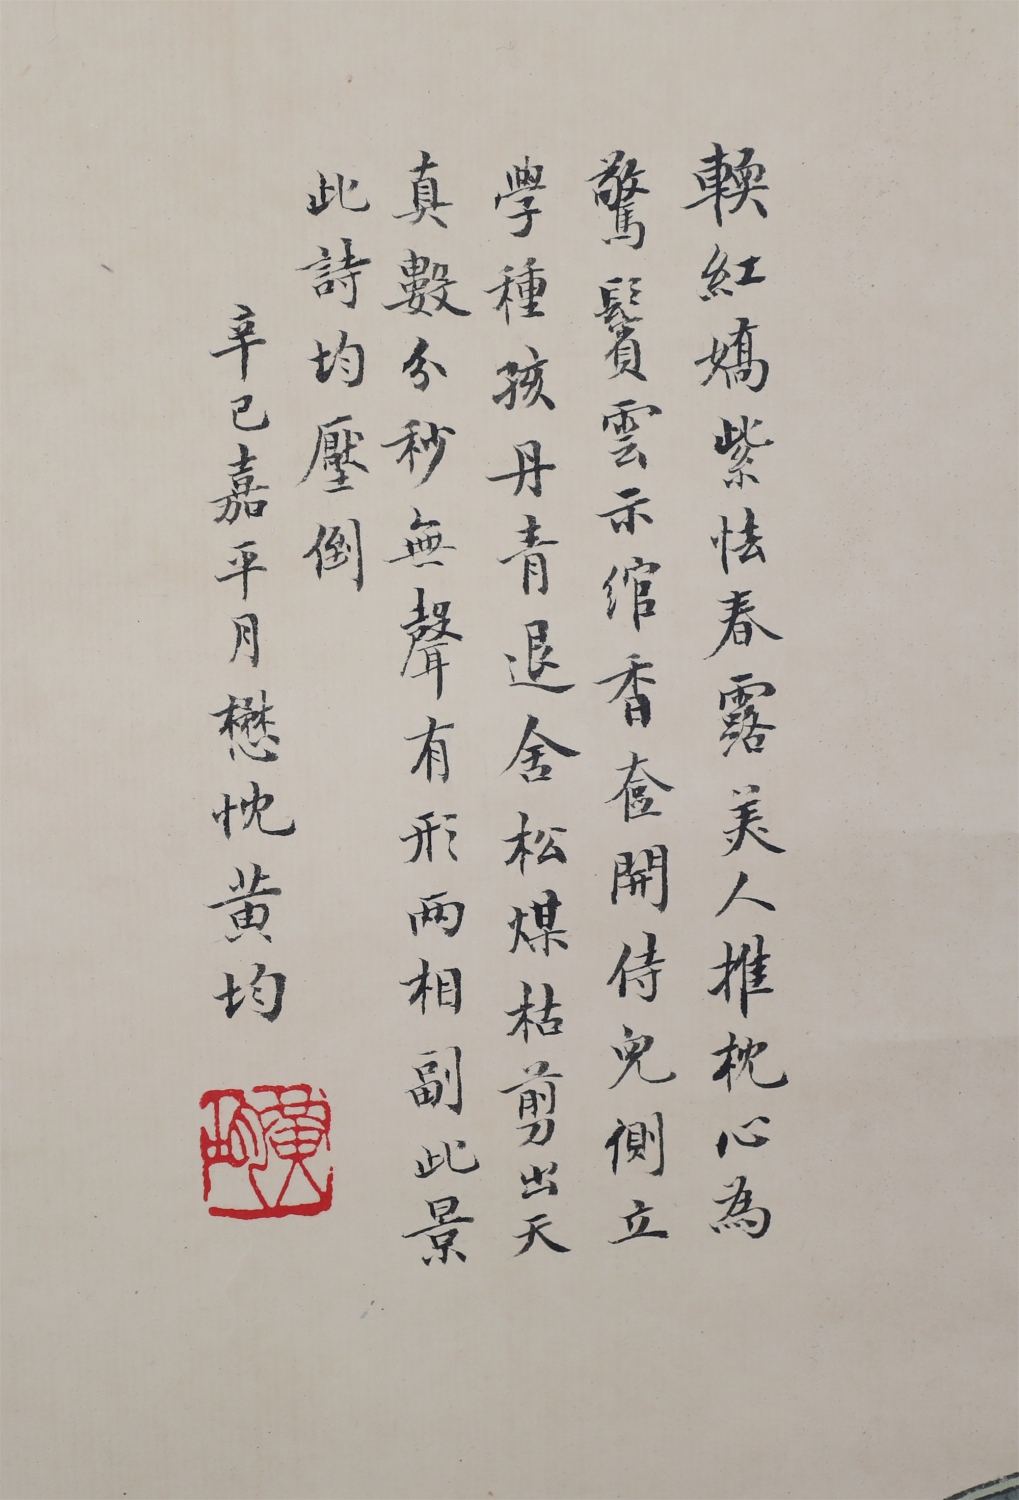 輭紅嬌紫怯春露美人推枕心為
驚鬢雲示綰香奩開侍兒側立
學種孩丹青退舍松煤枯剪出天
真數分秒無聲有形兩相副此景
此詩均壓倒
辛巳嘉平月懋忱黄均
黄均